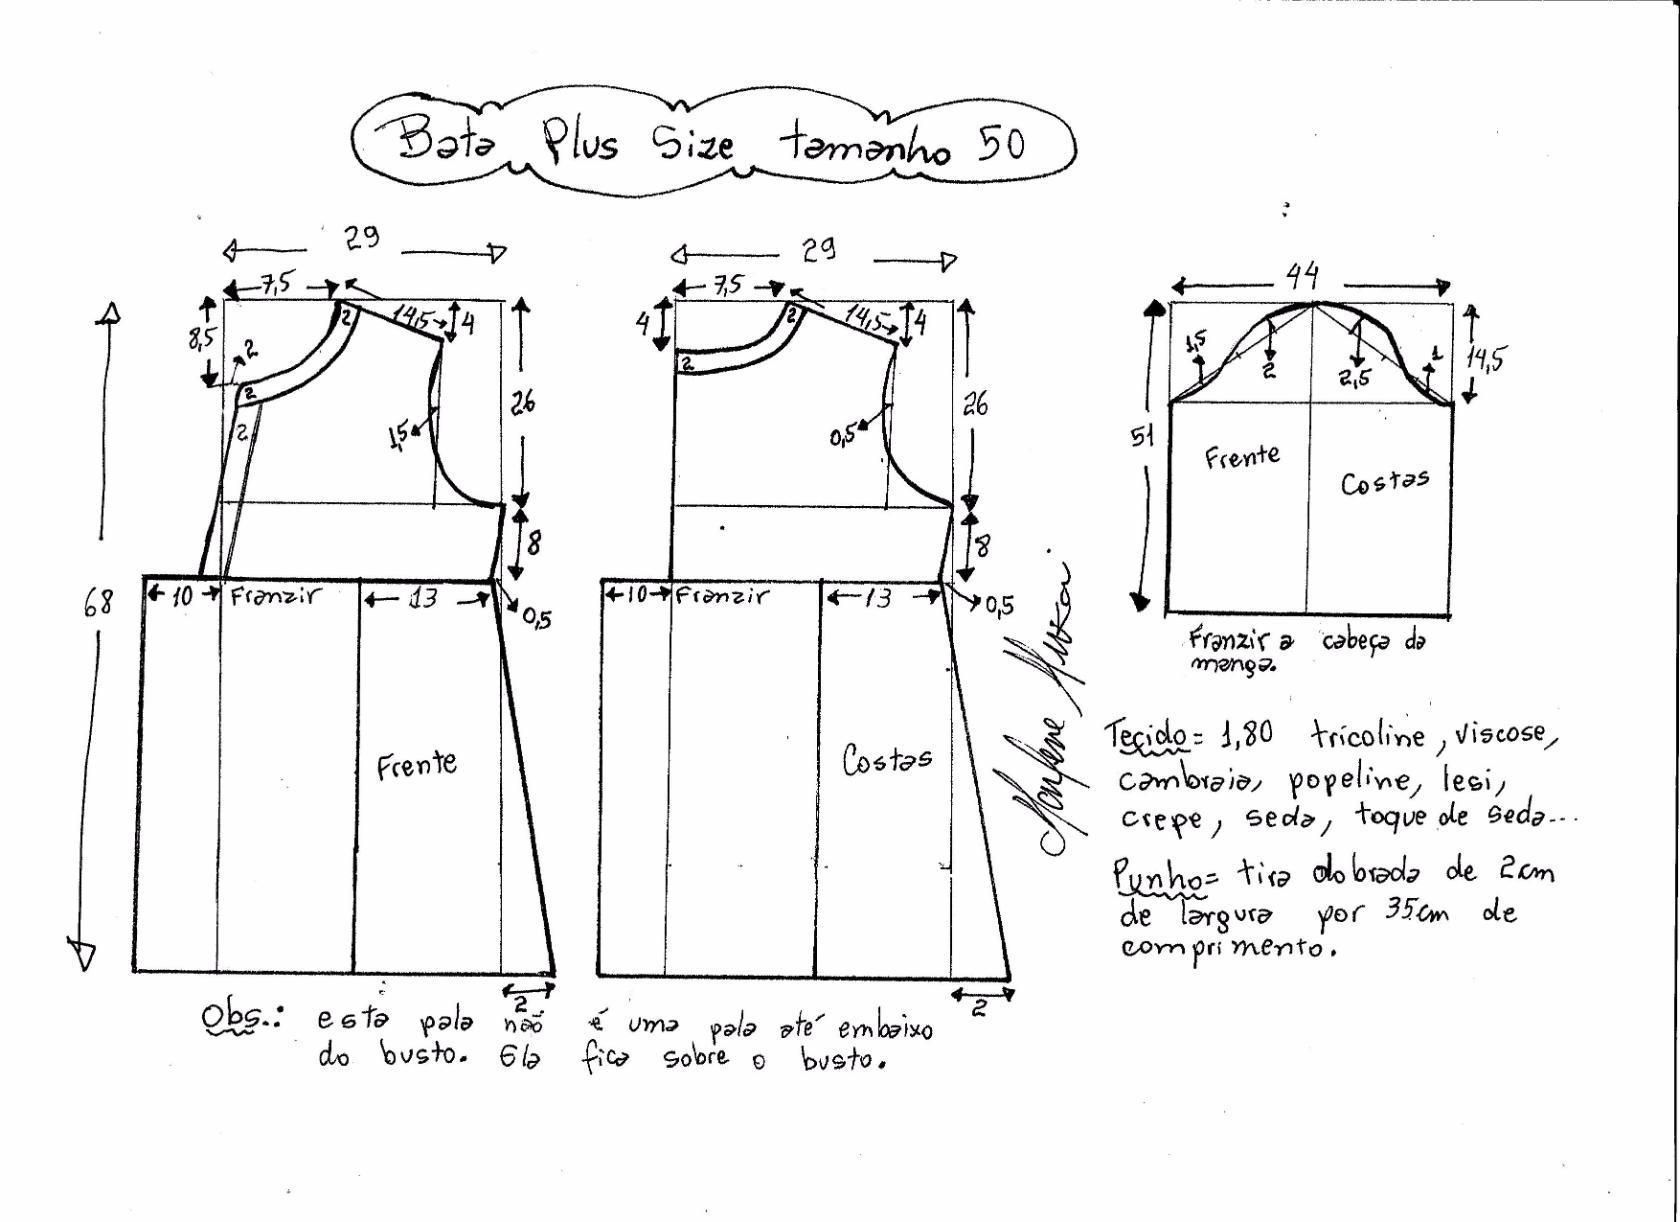 Bata Plus Size tamanho 50
29
7,5
14,5
4
8,5
2
2
2
2
1,5
26
8
68
10
Franzir
13
0,5
Frente
2
29
7,5
14,5
4
4
2
2
0,5
26
8
10
Franzir
13
0,5
Costas
2
44
1,5
2
2,5
1
14,5
51
Frente
Costas
Franzir a cabeça da
manga.
Tecido = 1,80 tricoline, viscose,
cambraia, popeline, lesi,
crepe, seda, toque de seda...
Punho = tira dobrada de 2cm
de largura por 35cm de
comprimento.
Obs.: esta pala não é uma pala até embaixo
do busto. Ela fica sobre o busto.